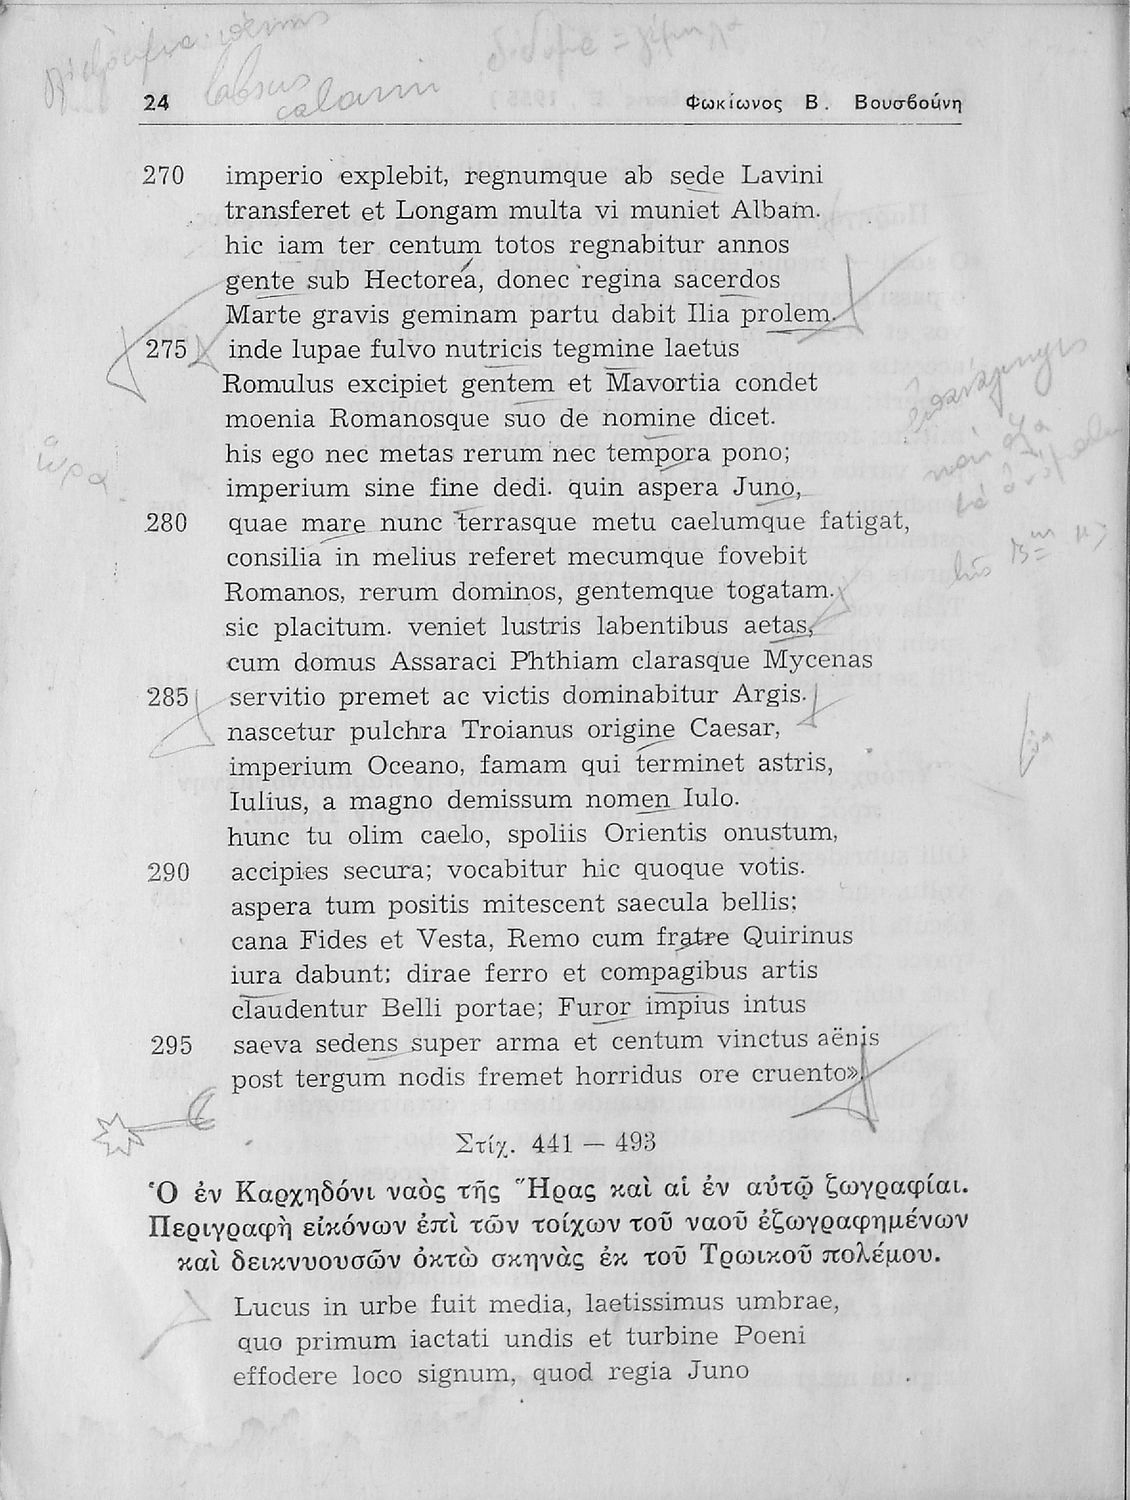 labsus
calami
24 Φωκίωνος Β. Βουσβούνη
270 imperio explebit, regnumque ab sede Lavini
transferet et Longam multa vi muniet Albam.
hic iam ter centum totos regnabitur annos
gente sub Hectorea, donec regina sacerdos
Marte gravis geminam partu dabit Ilia prolem.
275 inde lupae fulvo nutricis tegmine laetus
Romulus excipiet gentem et Mavortia condet
moenia Romanosque suo de nomine dicet.
his ego nec metas rerum nec tempora pono;
imperium sine fine dedi. quin aspera Juno,
280 quae mare nunc terrasque metu caelumque fatigat,
consilia in melius referet mecumque fovebit
Romanos, rerum dominos, gentemque togatam.
sic placitum. veniet lustris labentibus aetas,
cum domus Assaraci Phthiam clarasque Mycenas
285 servitio premet ac victis dominabitur Argis.
nascetur pulchra Troianus origine Caesar,
imperium Oceano, famam qui terminet astris,
Iulius, a magno demissum nomen Iulo.
hunc tu olim caelo, spoliis Orientis onustum,
290 accipies secura; vocabitur hic quoque votis.
aspera tum positis mitescent saecula bellis;
cana Fides et Vesta, Remo cum fratre Quirinus
iura dabunt; dirae ferro et compagibus artis
claudentur Belli portae; Furor impius intus
295 saeva sedens super arma et centum vinctus aënis
post tergum nodis fremet horridus ore cruento»
Στίχ. 441 — 493
Ὁ ἐν Καρχηδόνι ναὸς τῆς Ἥρας καὶ αἱ ἐν αὐτῷ ζωγραφίαι.
Περιγραφὴ εἰκόνων ἐπὶ τῶν τοίχων τοῦ ναοῦ ἐζωγραφημένων
καὶ δεικνυουσῶν ὀκτὼ σκηνὰς ἐκ τοῦ Τρωικοῦ πολέμου.
Lucus in urbe fuit media, laetissimus umbrae,
quo primum iactati undis et turbine Poeni
effodere loco signum, quod regia Juno